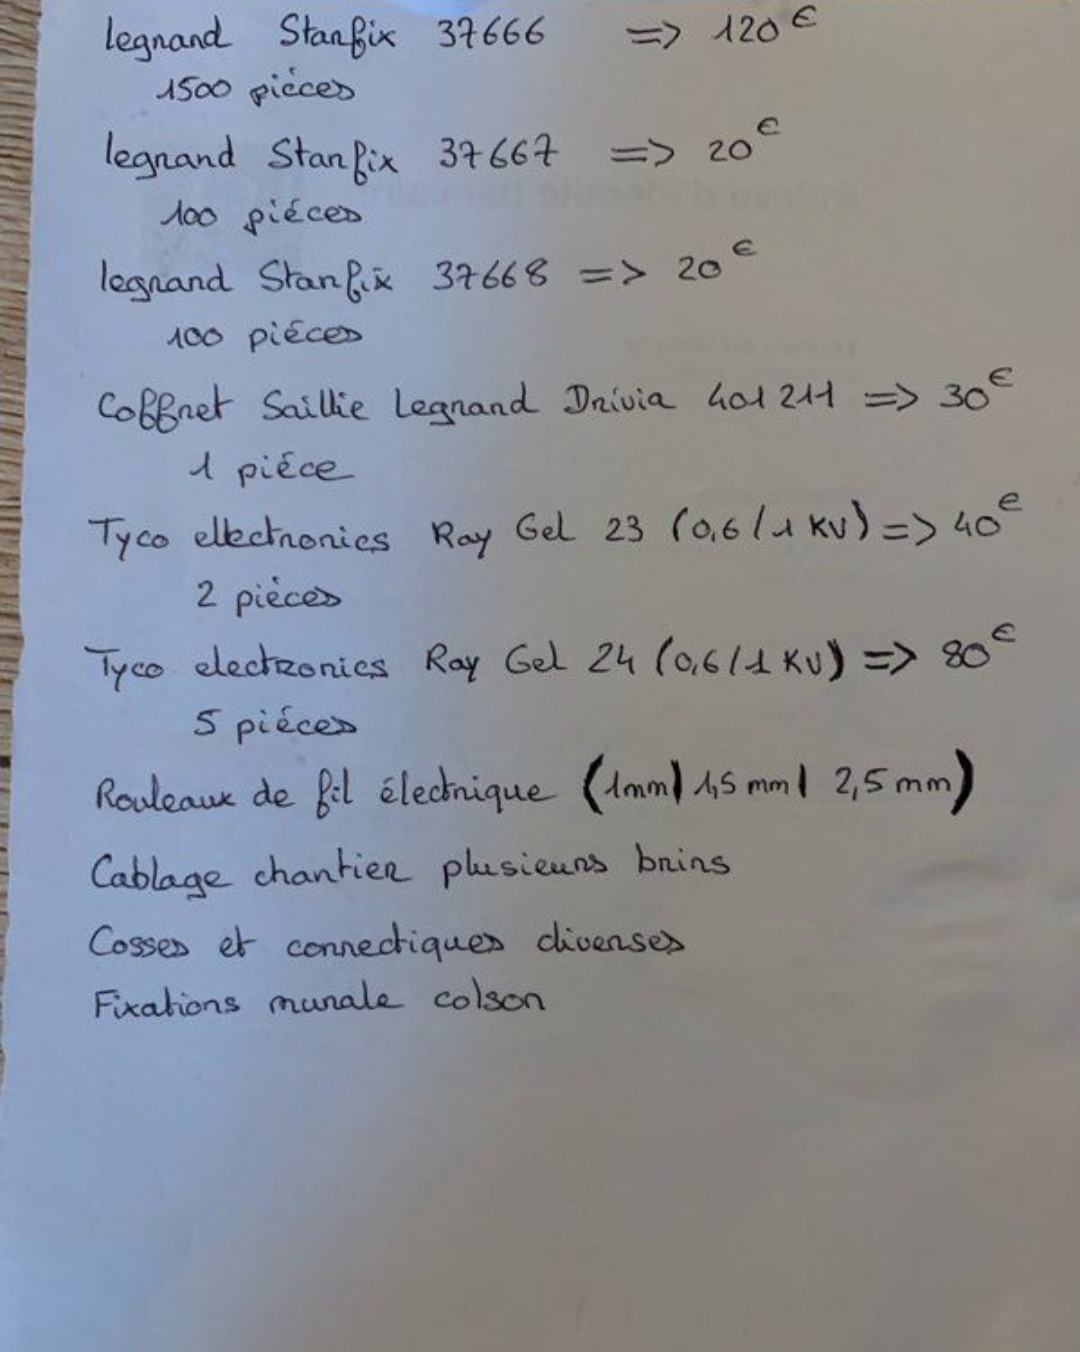 legrand Starfix 37666 => 120€
1500 piéces
legrand Starfix 37667 => 20€
100 piéces
legrand Starfix 37668 => 20€
100 piéces
Coffret Saillie Legrand Drivia 401211 => 30€
1 piéce
Tyco ellectronics Ray Gel 23 (0,6/1 KV) => 40€
2 piéces
Tyco electronics Ray Gel 24 (0,6/1 KV) => 80€
5 piéces
Rouleaux de fil électrique (1mm| 1,5 mm| 2,5 mm)
Cablage chantier plusieurs brins
Cosses et connectiques diverses
Fixations murale colson